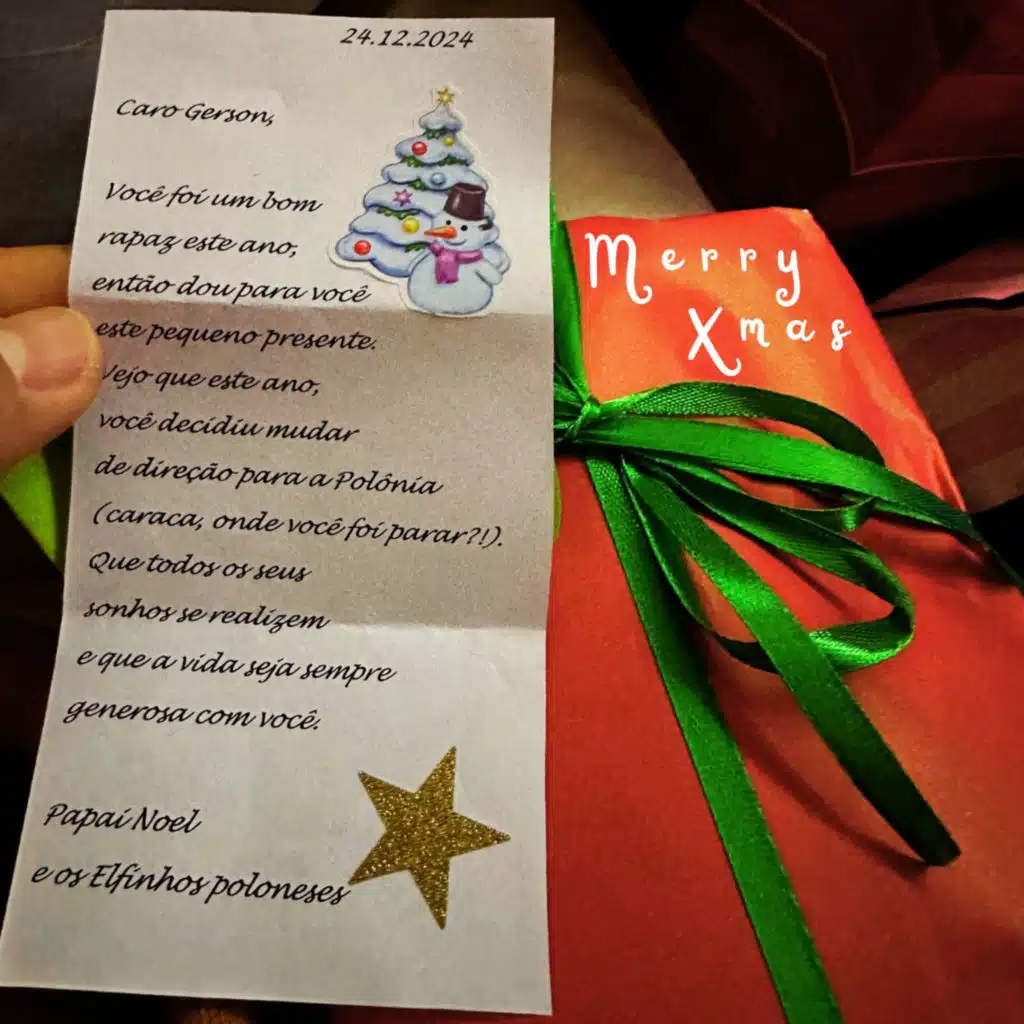 24.12.2024
Caro Gerson,
Você foi um bom
rapaz este ano,
então dou para você
este pequeno presente.
Vejo que este ano,
você decidiu mudar
de direção para a Polônia
(caraca, onde você foi parar?!).
Que todos os seus
sonhos se realizem
e que a vida seja sempre
generosa com você.
Papai Noel
e os Elfinhos poloneses
Merry
Xmas